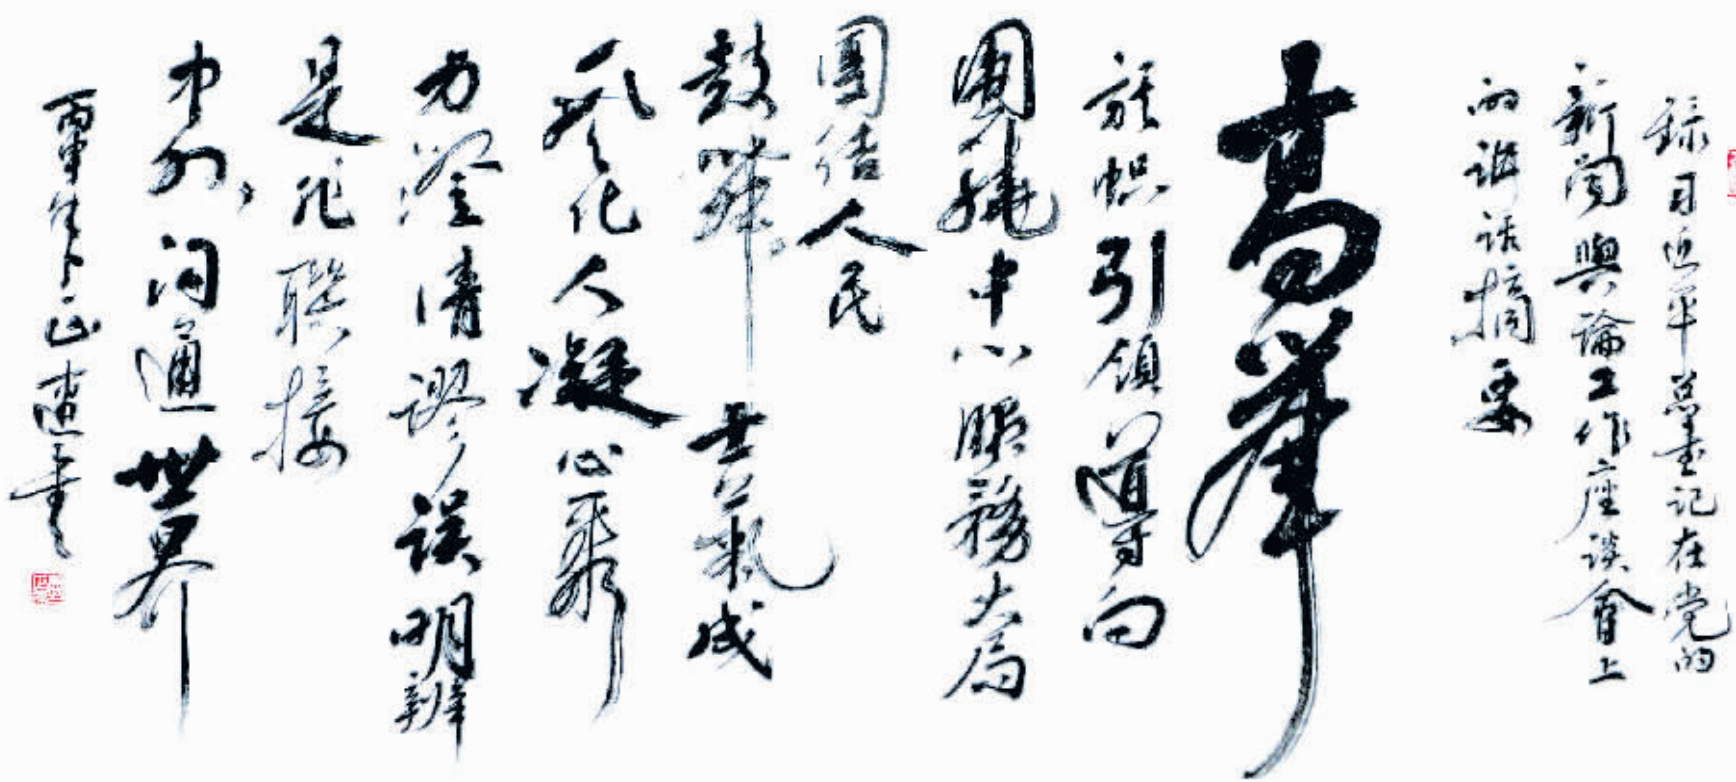 録习近平总書记在党的
新闻輿論工作座谈會上
的讲话摘要
高举
旗帜引領導向
圍繞中心服務大局
團结人民
鼓舞士氣成
風化人凝心聚
力澄清谬误明辨
是非联接
中外沟通世界
丙申年